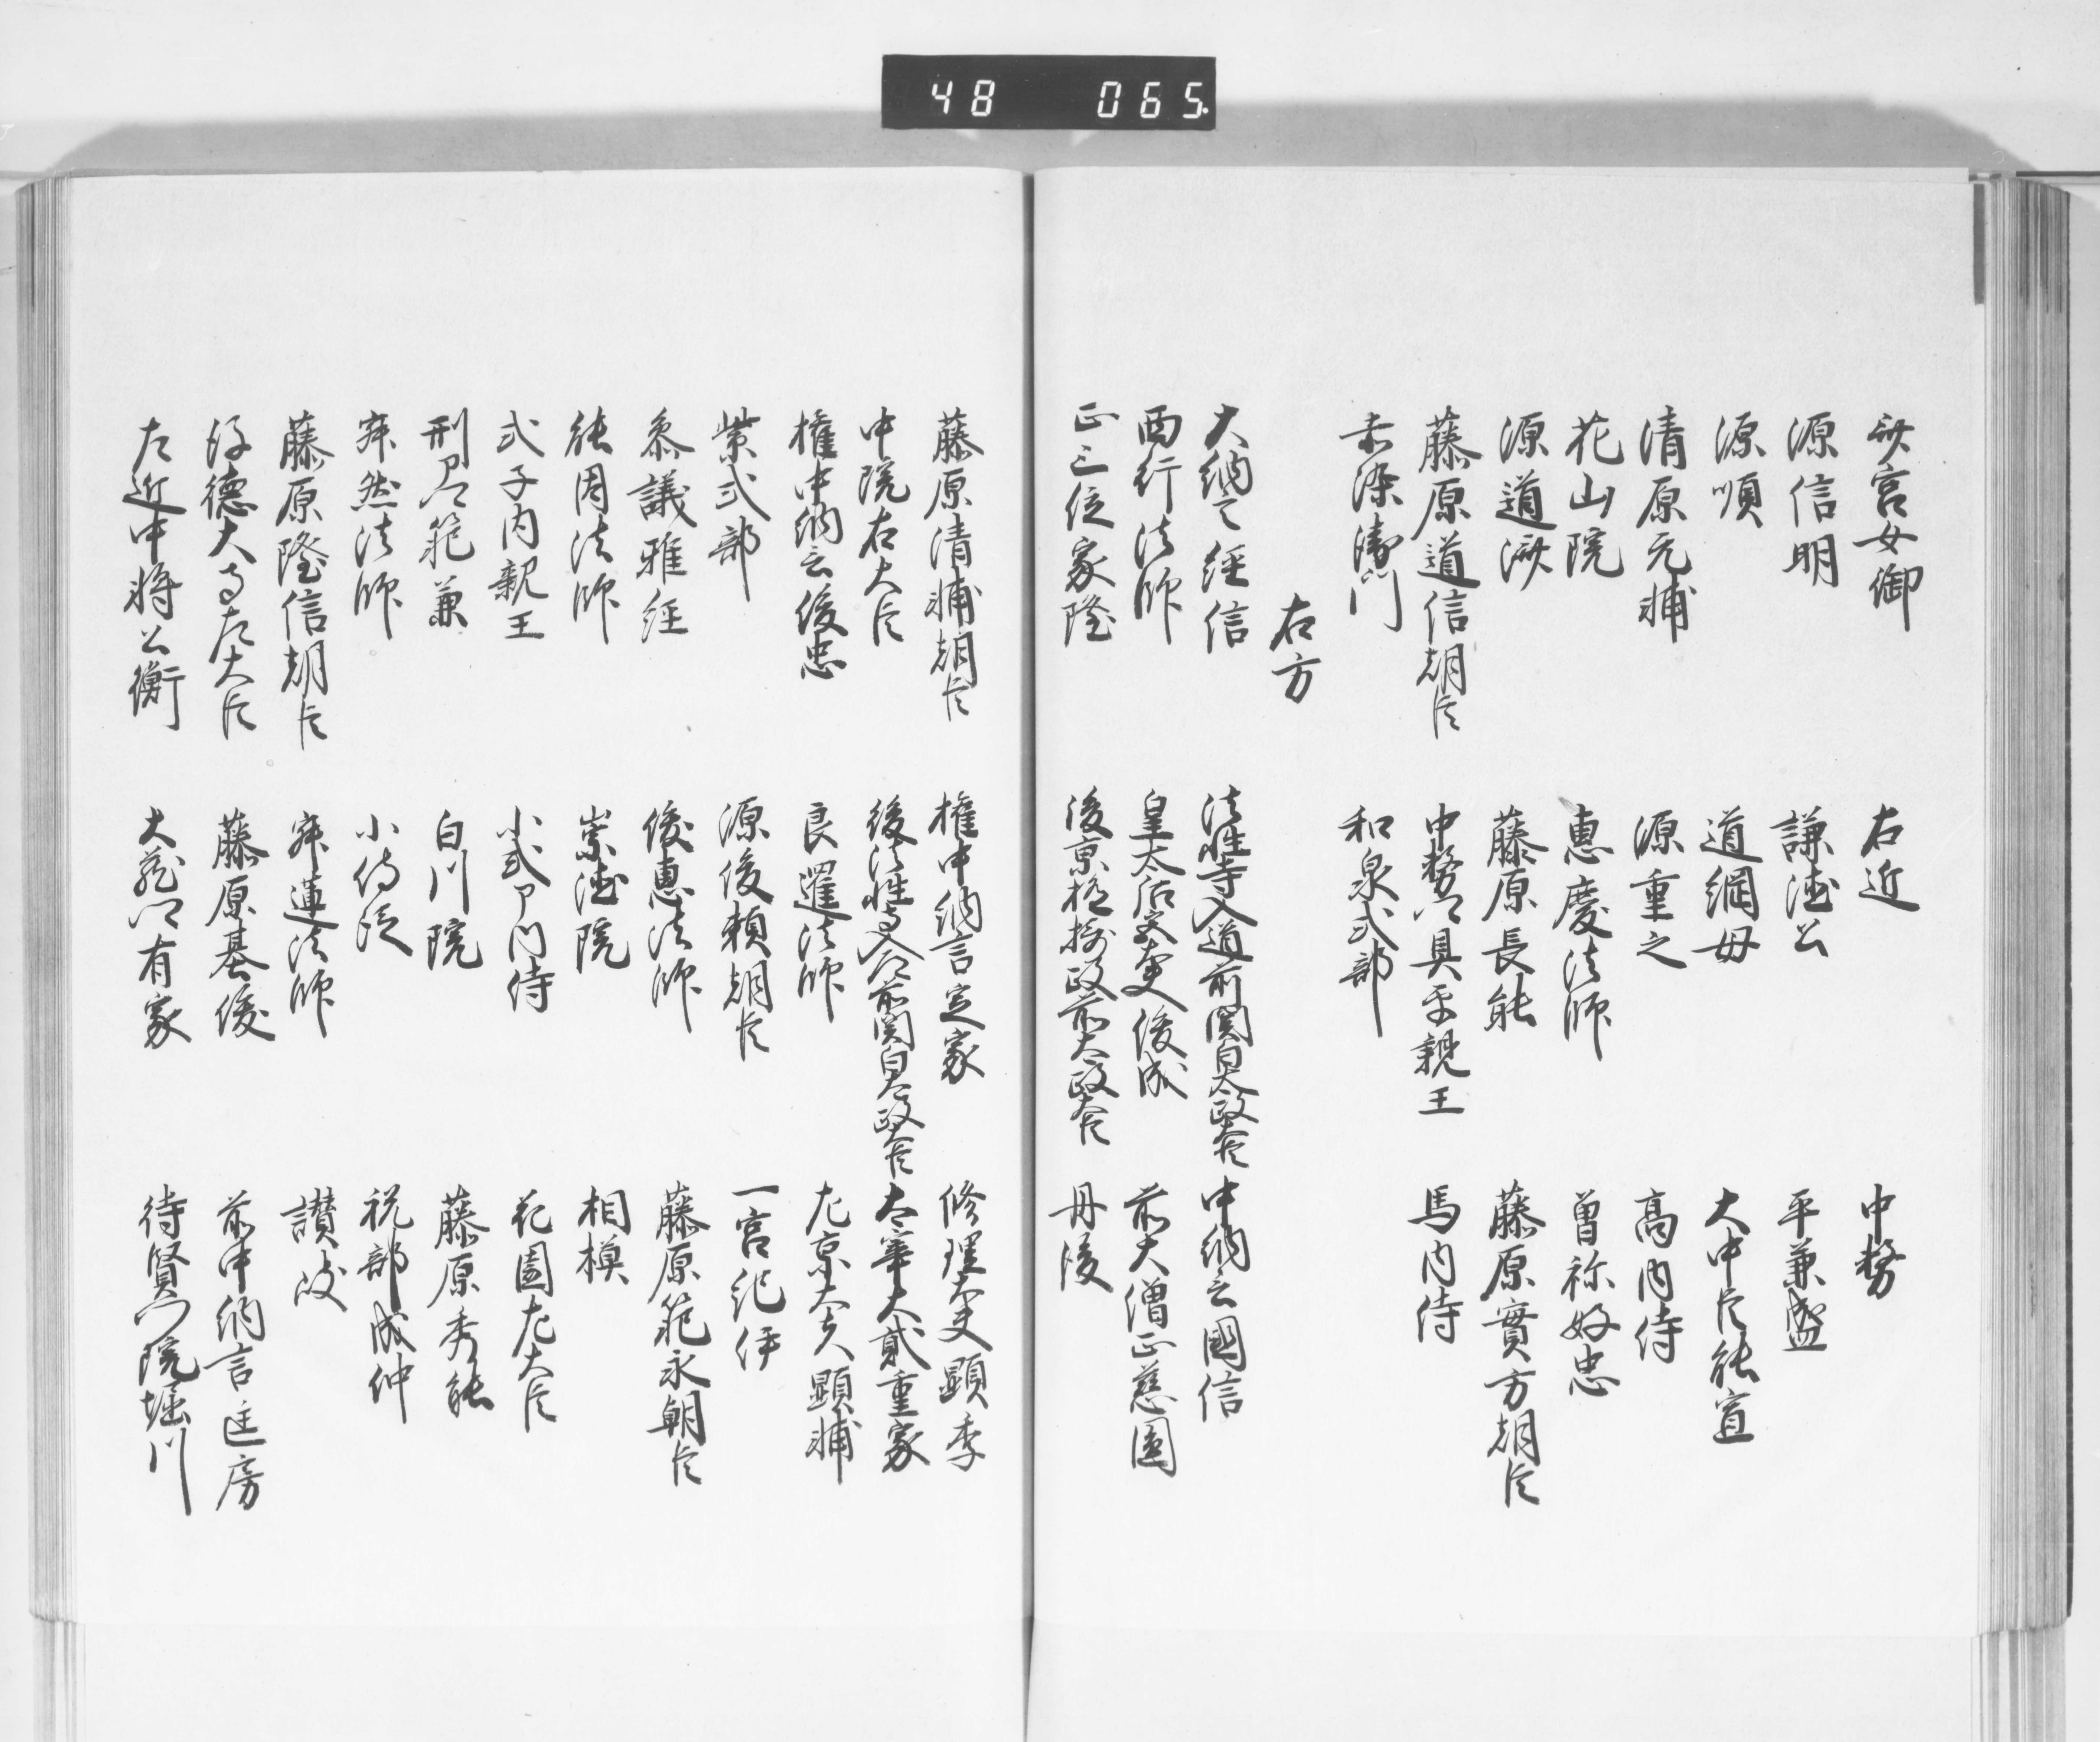 48 065
斎宮女御 右近 中務
源信明 謙徳公 平兼盛
源順 道綱母 大中臣能宣
清原元輔 源重之 高内侍
花山院 惠慶法師 曽祢好忠
源道済 藤原長能 藤原實方朝臣
藤原道信朝臣 中務卿具平親王 馬内侍
赤染衛門 和泉式部
右方
大納言経信 法性寺入道前関白太政大臣 中納言國信
西行法師 皇太后宮大夫俊成 前大僧正慈圓
正三位家隆 後京極摂政前太政大臣 丹後
藤原清輔朝臣 権中納言定家 修理大夫顕季
中院右大臣 後法性寺入道前関白太政大臣 太宰大貳重家
権中納言俊忠 良暹法師 左京大夫顕輔
紫式部 源俊頼朝臣 一宮紀伊
参議雅経 俊惠法師 藤原範永朝臣
能因法師 崇徳院 相模
式子内親王 小式部内侍 花園左大臣
刑部卿範兼 白川院 藤原秀能
寂然法師 小侍従 祝部成仲
藤原隆信朝臣 寂蓮法師 讃岐
後徳大寺左大臣 藤原基俊 前中納言匡房
左近中将公衡 大蔵卿有家 待賢門院堀川